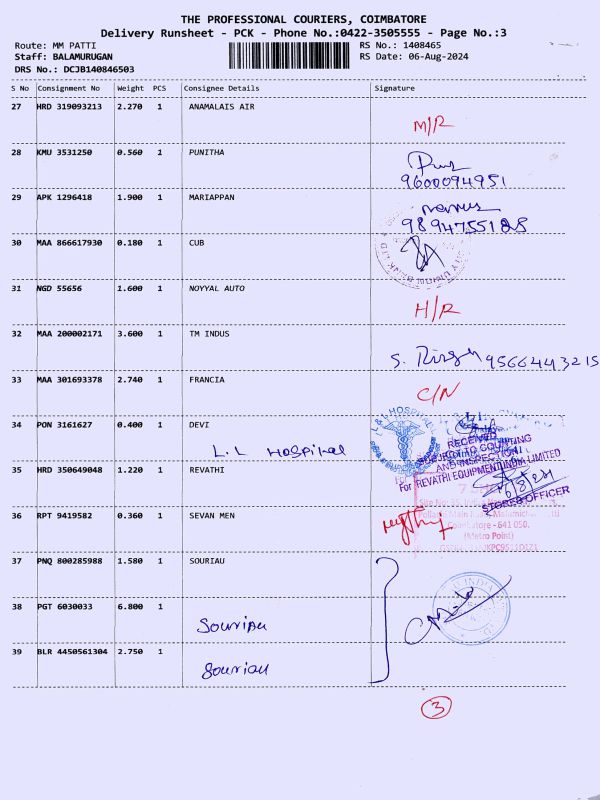 THE PROFESSIONAL COURIERS, COIMBATORE
Delivery Runsheet - PCK - Phone No.:0422-3505555 - Page No.:3
Route: MM PATTI
RS No.: 1408465
Staff: BALAMURUGAN
RS Date: 06-Aug-2024
DRS No.: DCJB140846503
S No Consignment No Weight PCS Consignee Details Signature
27 HRD 319093213 2.270 1 ANAMALAIS AIR
M/R
28 KMU 3531250 0.560 1 PUNITHA
9600094951
29 APK 1296418 1.900 1 MARIAPPAN
9894755185
30 MAA 866617930 0.180 1 CUB
31 NGD 55656 1.600 1 NOYYAL AUTO
H/R
32 MAA 200002171 3.600 1 TM INDUS
S. 9566443215
33 MAA 301693378 2.740 1 FRANCIA
C/N
34 PON 3161627 0.400 1 DEVI
L.L Hospital
L & L HOSPITAL
RECEIVED
SUBJECT TO COUNTING
AND INSPECTION
For REVATHI EQUIPMENT INDIA LIMITED
6/8/24
STORES OFFICER
35 HRD 350649048 1.220 1 REVATHI
36 RPT 9419582 0.360 1 SEVAN MEN
Coimbatore - 641 050.
(Metro Point)
37 PNQ 800285988 1.580 1 SOURIAU
38 PGT 6030033 6.800 1
Souriau
39 BLR 4450561304 2.750 1
Souriau
3